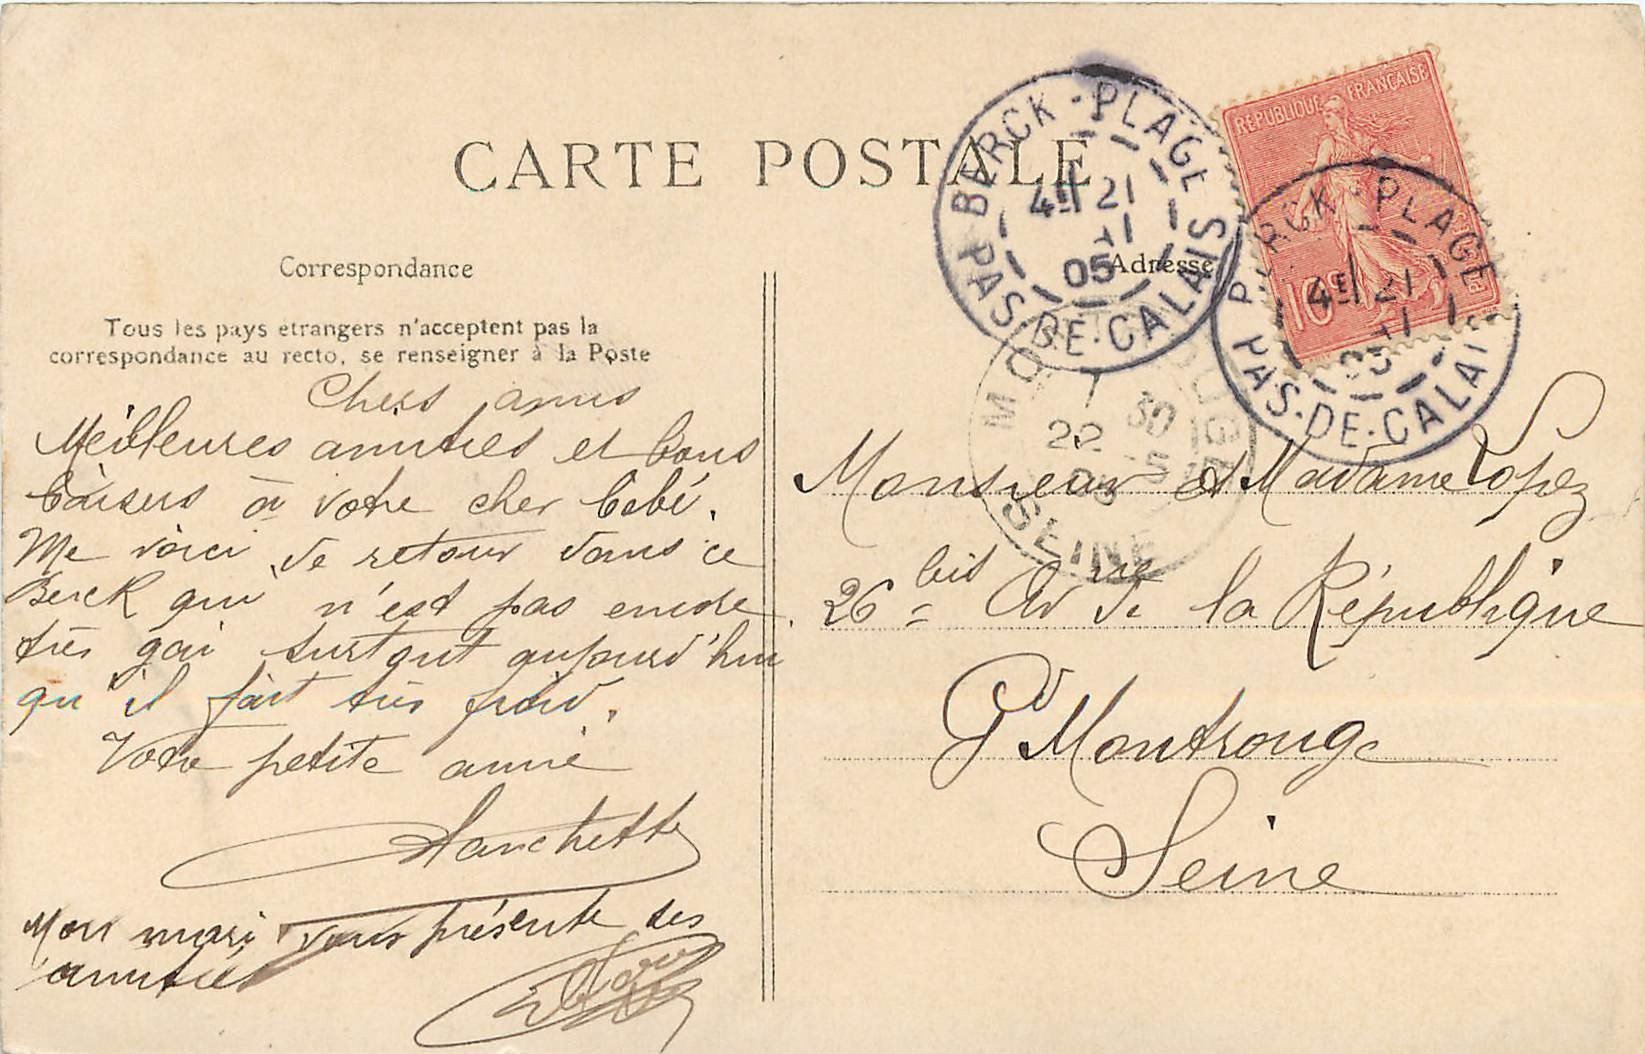 CARTE POSTALE
Correspondance
Adresse
Tous les pays etrangers n'acceptent pas la
correspondance au recto, se renseigner à la Poste
BERCK-PLAGE
4E 21
XI
05
PAS-DE-CALAIS
REPUBLIQUE FRANÇAISE
10c
BERCK-PLAGE
4E 21
XI
05
PAS-DE-CALAIS
MONTROUGE
30
22
05
SEINE
Chers amis
Meilleures amitiés et bons
baisers à votre cher bebé.
Me voici de retour dans ce
Berck qui n'est pas encore
très gai surtout aujourd'hui
qu'il fait très froid.
Votre petite amie
Mon mari vous présente ses
amitiés
Monsieur et Madame Lopez
26 bis Av ue de la République
Gd Montrouge
Seine